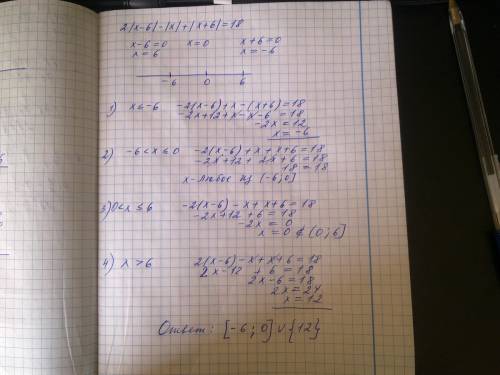 2|x-6|-|x|+|x+6|=18
x-6=0 x=0 x+6=0
x=6 x=-6
-6 0 6
1) x≤-6 -2(x-6)+x-(x+6)=18
-2x+12+x-x-6=18
-2x=12
x=-6
2) -6<x≤0 -2(x-6)+x+x+6=18
-2x+12+2x+6=18
18=18
x-любое из (-6;0]
3) 0<x≤6 -2(x-6)-x+x+6=18
-2x+12+6=18
-2x=0
x=0∉(0;6]
4) x>6 2(x-6)-x+x+6=18
2x-12+6=18
2x-6=18
2x=24
x=12
Ответ: [-6;0]∪{12}